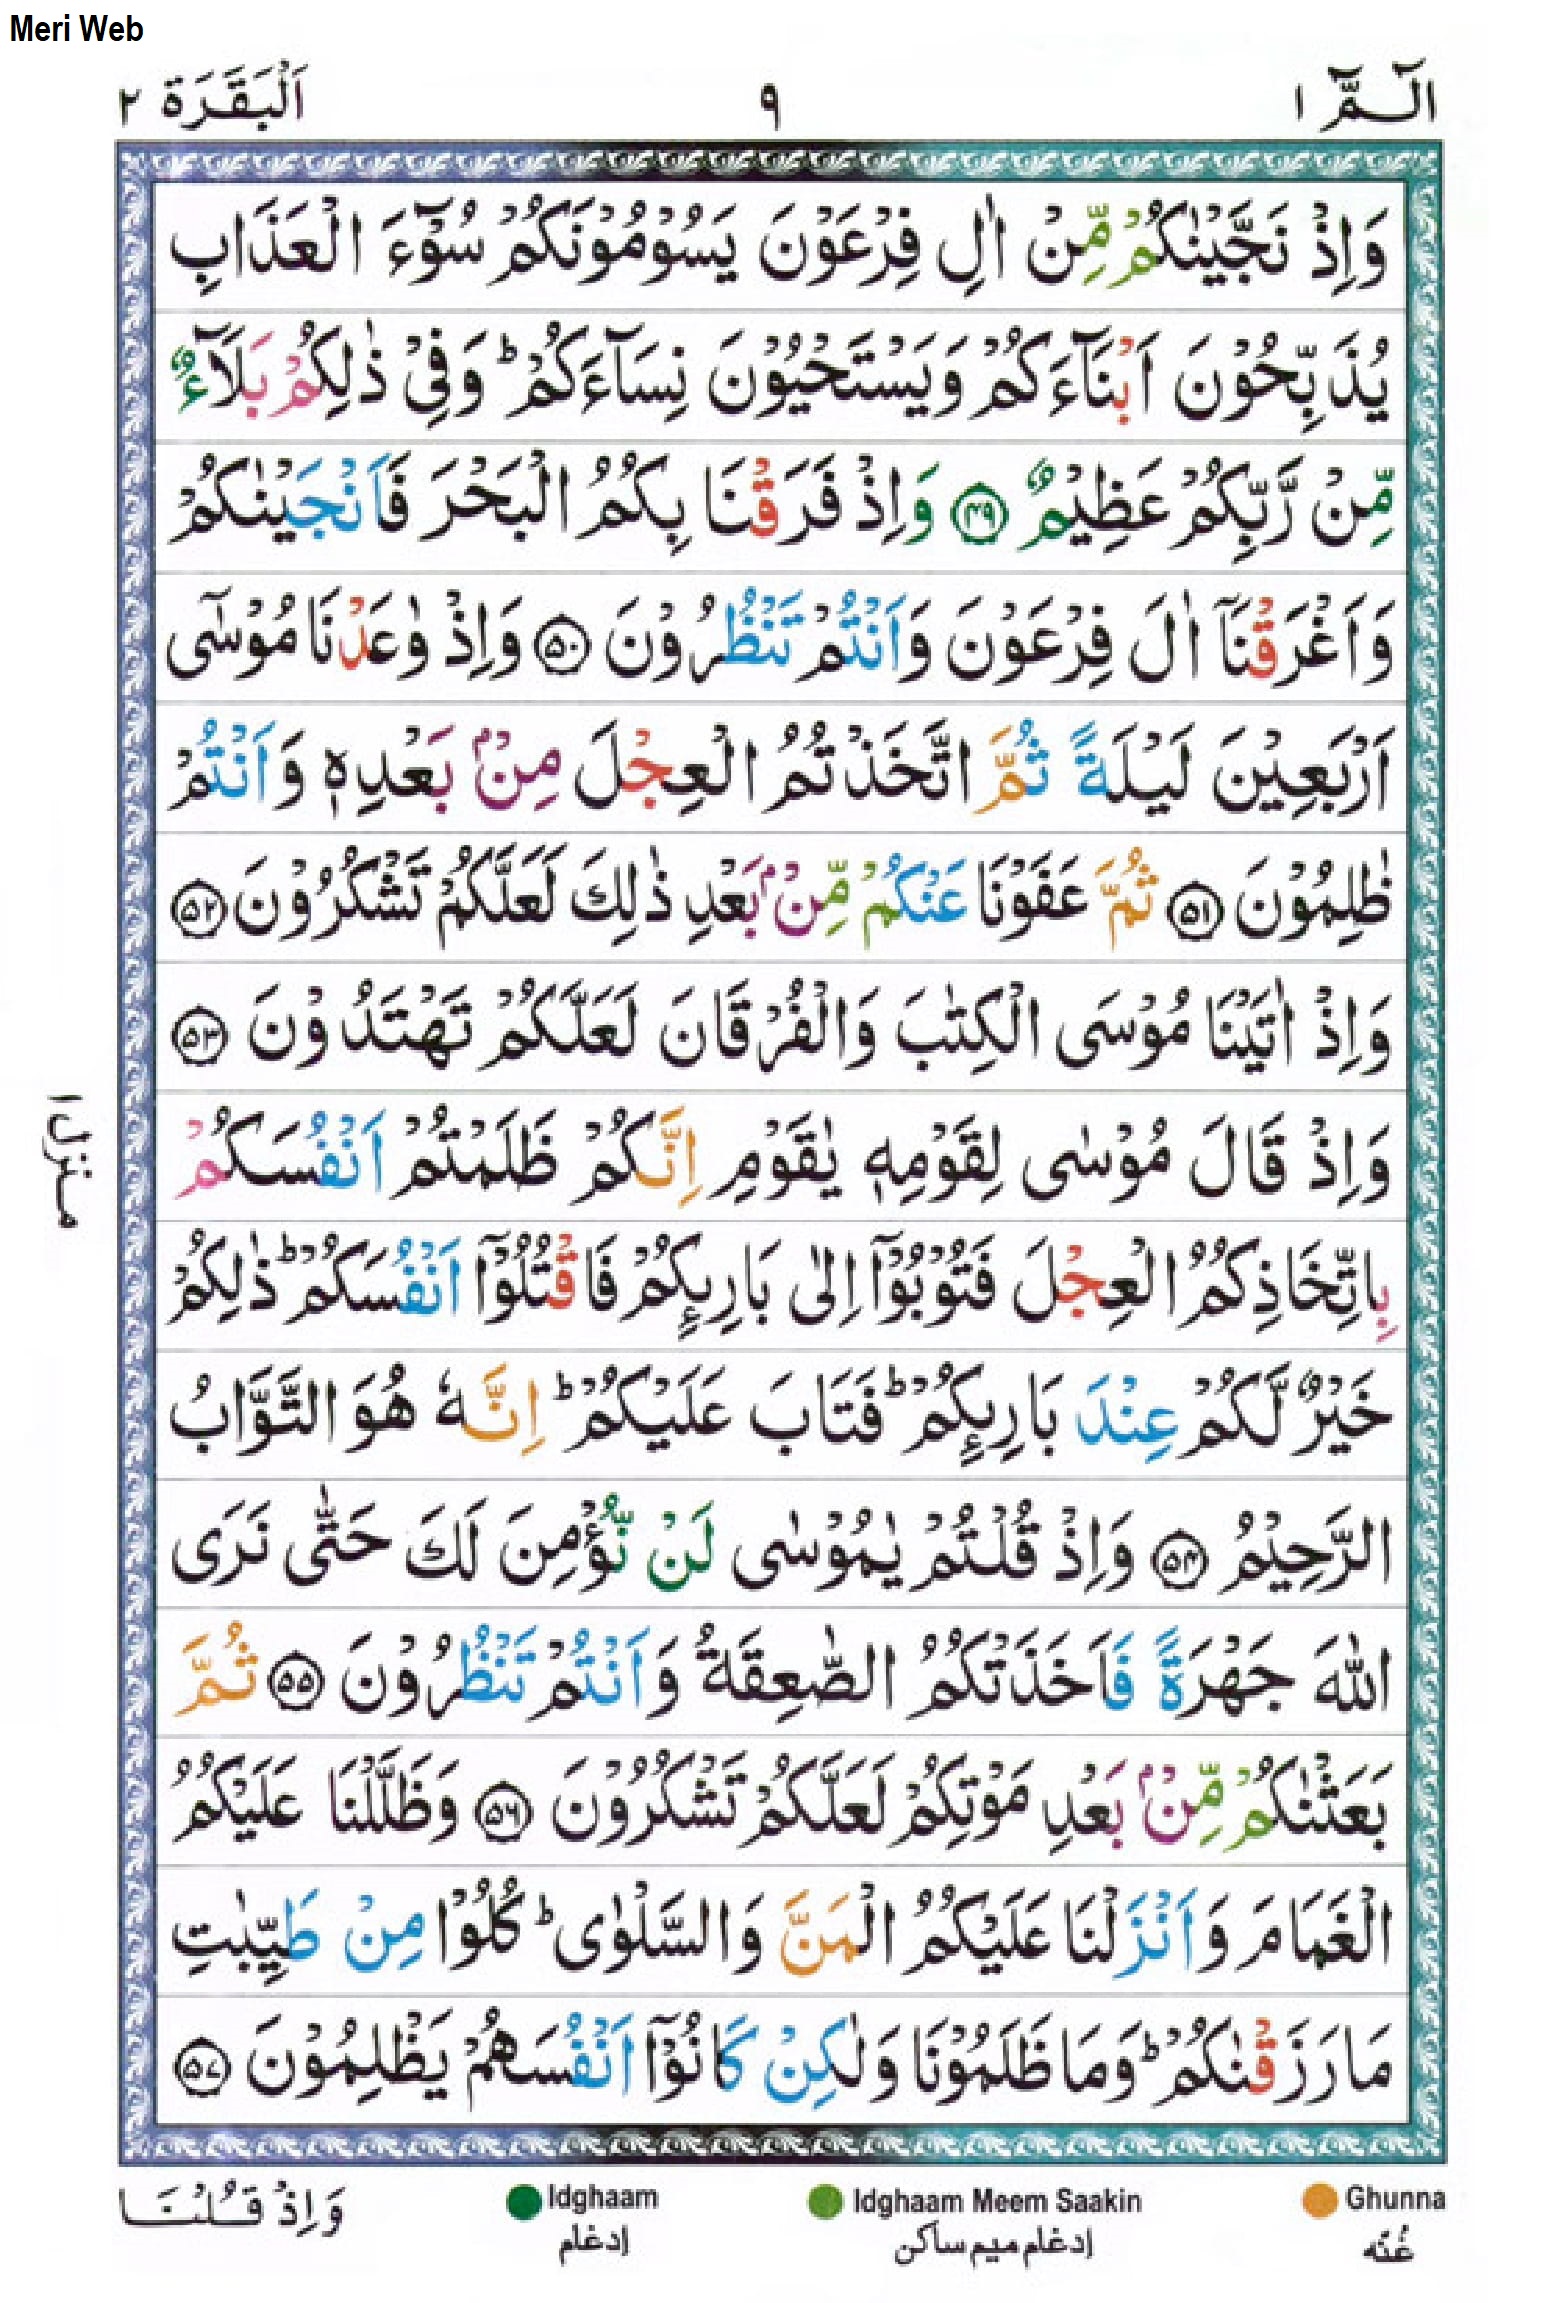 Meri Web
الٓمّٓ ١ ٩ اَلْبَقَرَة ٢
وَاِذْ نَجَّيْنٰكُمْ مِّنْ اٰلِ فِرْعَوْنَ يَسُوْمُوْنَكُمْ سُوْٓءَ الْعَذَابِ
يُذَبِّحُوْنَ اَبْنَآءَكُمْ وَيَسْتَحْيُوْنَ نِسَآءَكُمْ ؕ وَفِىْ ذٰلِكُمْ بَلَآءٌ
مِّنْ رَّبِّكُمْ عَظِيْمٌ ۝۴۹ وَاِذْ فَرَقْنَا بِكُمُ الْبَحْرَ فَاَنْجَيْنٰكُمْ
وَاَغْرَقْنَآ اٰلَ فِرْعَوْنَ وَاَنْتُمْ تَنْظُرُوْنَ ۝۵۰ وَاِذْ وٰعَدْنَا مُوْسٰٓى
اَرْبَعِيْنَ لَيْلَةً ثُمَّ اتَّخَذْتُمُ الْعِجْلَ مِنْۢ بَعْدِهٖ وَاَنْتُمْ
ظٰلِمُوْنَ ۝۵۱ ثُمَّ عَفَوْنَا عَنْكُمْ مِّنْۢ بَعْدِ ذٰلِكَ لَعَلَّكُمْ تَشْكُرُوْنَ ۝۵۲
وَاِذْ اٰتَيْنَا مُوْسَى الْكِتٰبَ وَالْفُرْقَانَ لَعَلَّكُمْ تَهْتَدُوْنَ ۝۵۳
وَاِذْ قَالَ مُوْسٰى لِقَوْمِهٖ يٰقَوْمِ اِنَّكُمْ ظَلَمْتُمْ اَنْفُسَكُمْ
بِاتِّخَاذِكُمُ الْعِجْلَ فَتُوْبُوْٓا اِلٰى بَارِئِكُمْ فَاقْتُلُوْٓا اَنْفُسَكُمْ ؕ ذٰلِكُمْ
خَيْرٌ لَّكُمْ عِنْدَ بَارِئِكُمْ ؕ فَتَابَ عَلَيْكُمْ ؕ اِنَّهٗ هُوَ التَّوَّابُ
الرَّحِيْمُ ۝۵۴ وَاِذْ قُلْتُمْ يٰمُوْسٰى لَنْ نُّؤْمِنَ لَكَ حَتّٰى نَرَى
اللّٰهَ جَهْرَةً فَاَخَذَتْكُمُ الصّٰعِقَةُ وَاَنْتُمْ تَنْظُرُوْنَ ۝۵۵ ثُمَّ
بَعَثْنٰكُمْ مِّنْۢ بَعْدِ مَوْتِكُمْ لَعَلَّكُمْ تَشْكُرُوْنَ ۝۵۶ وَظَلَّلْنَا عَلَيْكُمُ
الْغَمَامَ وَاَنْزَلْنَا عَلَيْكُمُ الْمَنَّ وَالسَّلْوٰى ؕ كُلُوْا مِنْ طَيِّبٰتِ
مَا رَزَقْنٰكُمْ ؕ وَمَا ظَلَمُوْنَا وَلٰكِنْ كَانُوْٓا اَنْفُسَهُمْ يَظْلِمُوْنَ ۝۵۷
منزل ١
وَاِذْ قُلْنَا
Idghaam
إدغام
Idghaam Meem Saakin
إدغام ميم ساكن
Ghunna
غُنّه